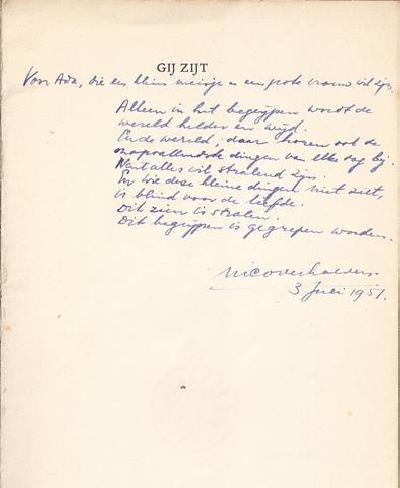 GIJ ZIJT
Voor Ada, die een klein meisje en een grote vrouw wil zijn.
Alleen in het begrijpen wordt de
wereld helder en wijd.
En de wereld, daar horen ook de
onopvallendste dingen van elke dag bij.
Want alles wil stralend zijn.
En wie deze kleine dingen niet ziet,
is blind voor de liefde.
Dit zien is stralen.
Dit begrijpen is gegrepen worden.
3 Juli 1951.